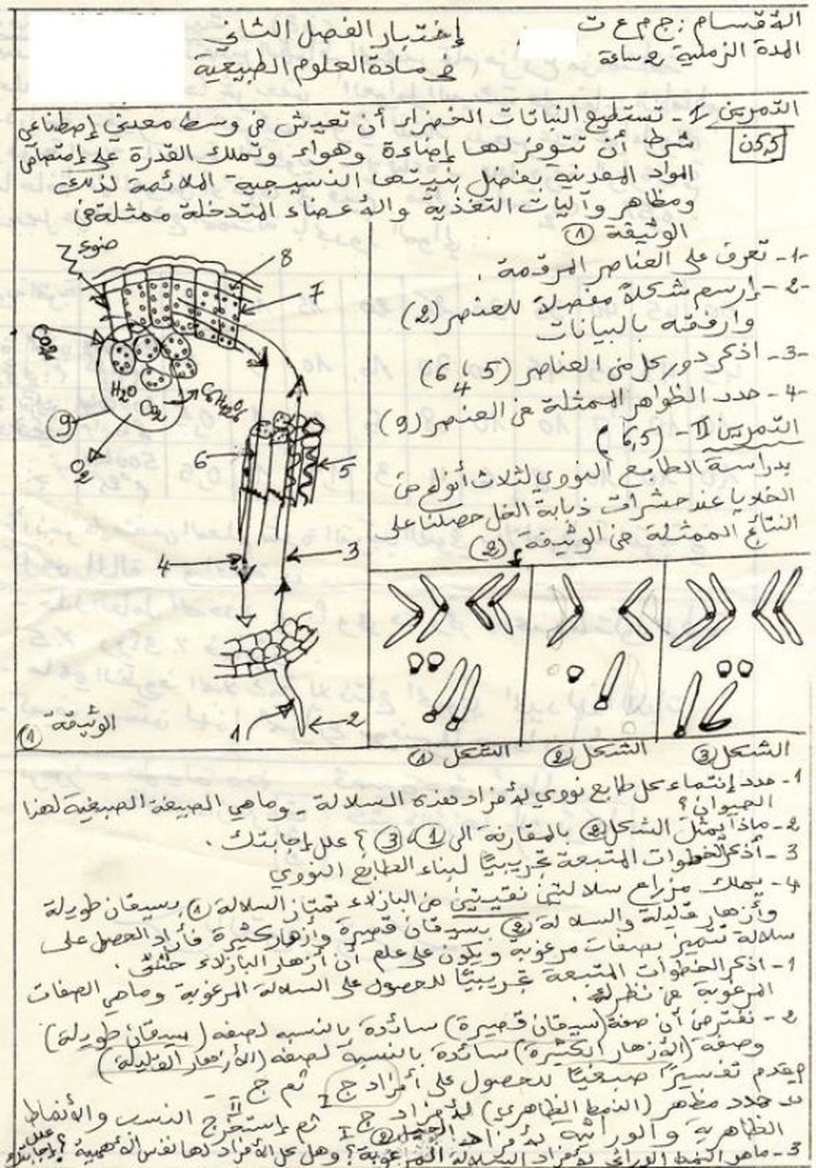 الأقسام: ج م ع ت
المدة الزمنية 2 ساعة
إختبار الفصل الثاني
في مادة العلوم الطبيعية
التمرين 1 - تستطيع النباتات الخضراء أن تعيش في وسط معدني إصطناعي
5,5ن
شرط أن تتوفر لها إضاءة وهواء وتملك القدرة على إمتصاص
المواد المعدنية بفضل بنيتها النسيجية الملائمة لذلك
ومظاهر وآليات التغذية والأعضاء المتدخلة ممثلة في
الوثيقة 1
1- تعرف على العناصر المرقمة.
2- إرسم شكلاً مفصلاً للعنصر (2)
وارفقه بالبيانات
3- اذكر دور كل من العناصر (5 4 6)
4- حدد الظواهر الممثلة في العنصر (9)
التمرين II - (6,5)
بدراسة الطابع النووي لثلاث أنواع من
الخلايا عند حشرات ذبابة الخل حصلنا على
النتائج الممثلة في الوثيقة (2)
ضوء
8
7
CO2
H2O
CO2
C6H12O6
9
O2
6
5
4
3
1
2
الوثيقة 1
الشكل 1
الشكل 2
الشكل 3
1- حدد إنتماء كل طابع نووي لأفراد هذه السلالة - وماهي الصيغة الصبغية لهذا
الحيوان؟
2- ماذا يمثل الشكل 2 بالمقارنة الى 1، 3؟ علل إجابتك.
3 - أذكر الخطوات المتبعة تجريبيًا لبناء الطابع النووي
4- يملك مزارع سلالتين نقيتين من البازلاء تمتاز السلالة 1 بسيقان طويلة
وأزهار قليلة والسلالة 2 بسيقان قصيرة وأزهار كثيرة فأراد الحصول على
سلالة تتميز بصفات مرغوبة ويكون على علم أن أزهار البازلاء خنثى.
1- اذكر الخطوات المتبعة تجريبيًا للحصول على السلالة المرغوبة وماهي الصفات
المرغوبة في نظرك.
2- نفترض أن صفة (سيقان قصيرة) سائدة بالنسبة لصفة (سيقان طويلة)
وصفة (الأزهار الكثيرة) سائدة بالنسبة لصفة (الأزهار القليلة)
قدم تفسيرًا صبغيًا للحصول على أفراد ج I ثم ج II -
حدد مظهر (النمط الظاهري) لأفراد ج I ثم إستخرج النسب والأنماط
الظاهرية والوراثية لأفراد الجيل 2
3- ماهو النمط الوراثي لأفراد السلالة المرغوبة؟ وهل كل الأفراد لها نفس الأهمية؟ علل إجابتك